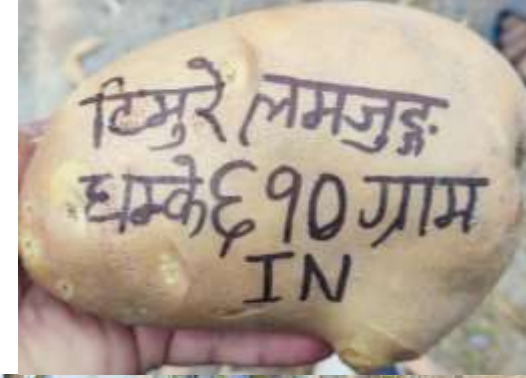 टिमुरे लमजुङ्ग
घम्के ६१० ग्राम
IN